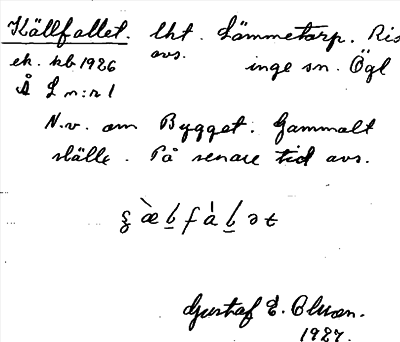 Källfallet. lht. Lämmetorp. Ris
ek. kb 1926 avs. inge sn. Ögl
Å L n:r 1
N.v. om Bygget. Gammalt
ställe. På senare tid avs.
Gustaf E. Olsson.
1927.